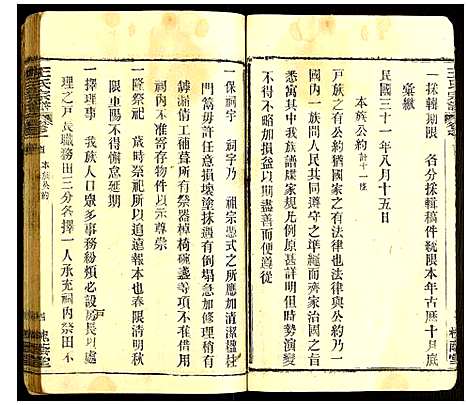 一採輯期限 各分採輯稿件統限本年古曆十月底
彙繳
民國三十一年八月十五日
本族公約計十一條
戶族之有公約也猶國家之有法律也法律與公約乃一
國內一族間人民共同遵守之準繩而齊家治國之道
悉寓其中我族譜牒家規凡例原甚詳明但時勢演變
不得不略加損益以期盡善而便遵循
一保祠宇 祠宇乃 祖宗憑式之所應加清潔楹柱
門窗毋許任意損壞塗抹遇有倒塌急加修理稍有
罅漏倩工補葺所有祭器棹椅碗盞等項不准借用
祠內不准寄存物件以示尊崇
一隆祭祀 歲時祭祀所以追遠報本也春限清明秋
限重陽不得懈怠延期
一擇理事 我族人口眾多事務紛類必設戶房長以處
理之戶長職務田三分各擇一人承充祠內祭田不
王氏宗譜
卷首
本族公約
王氏宗譜